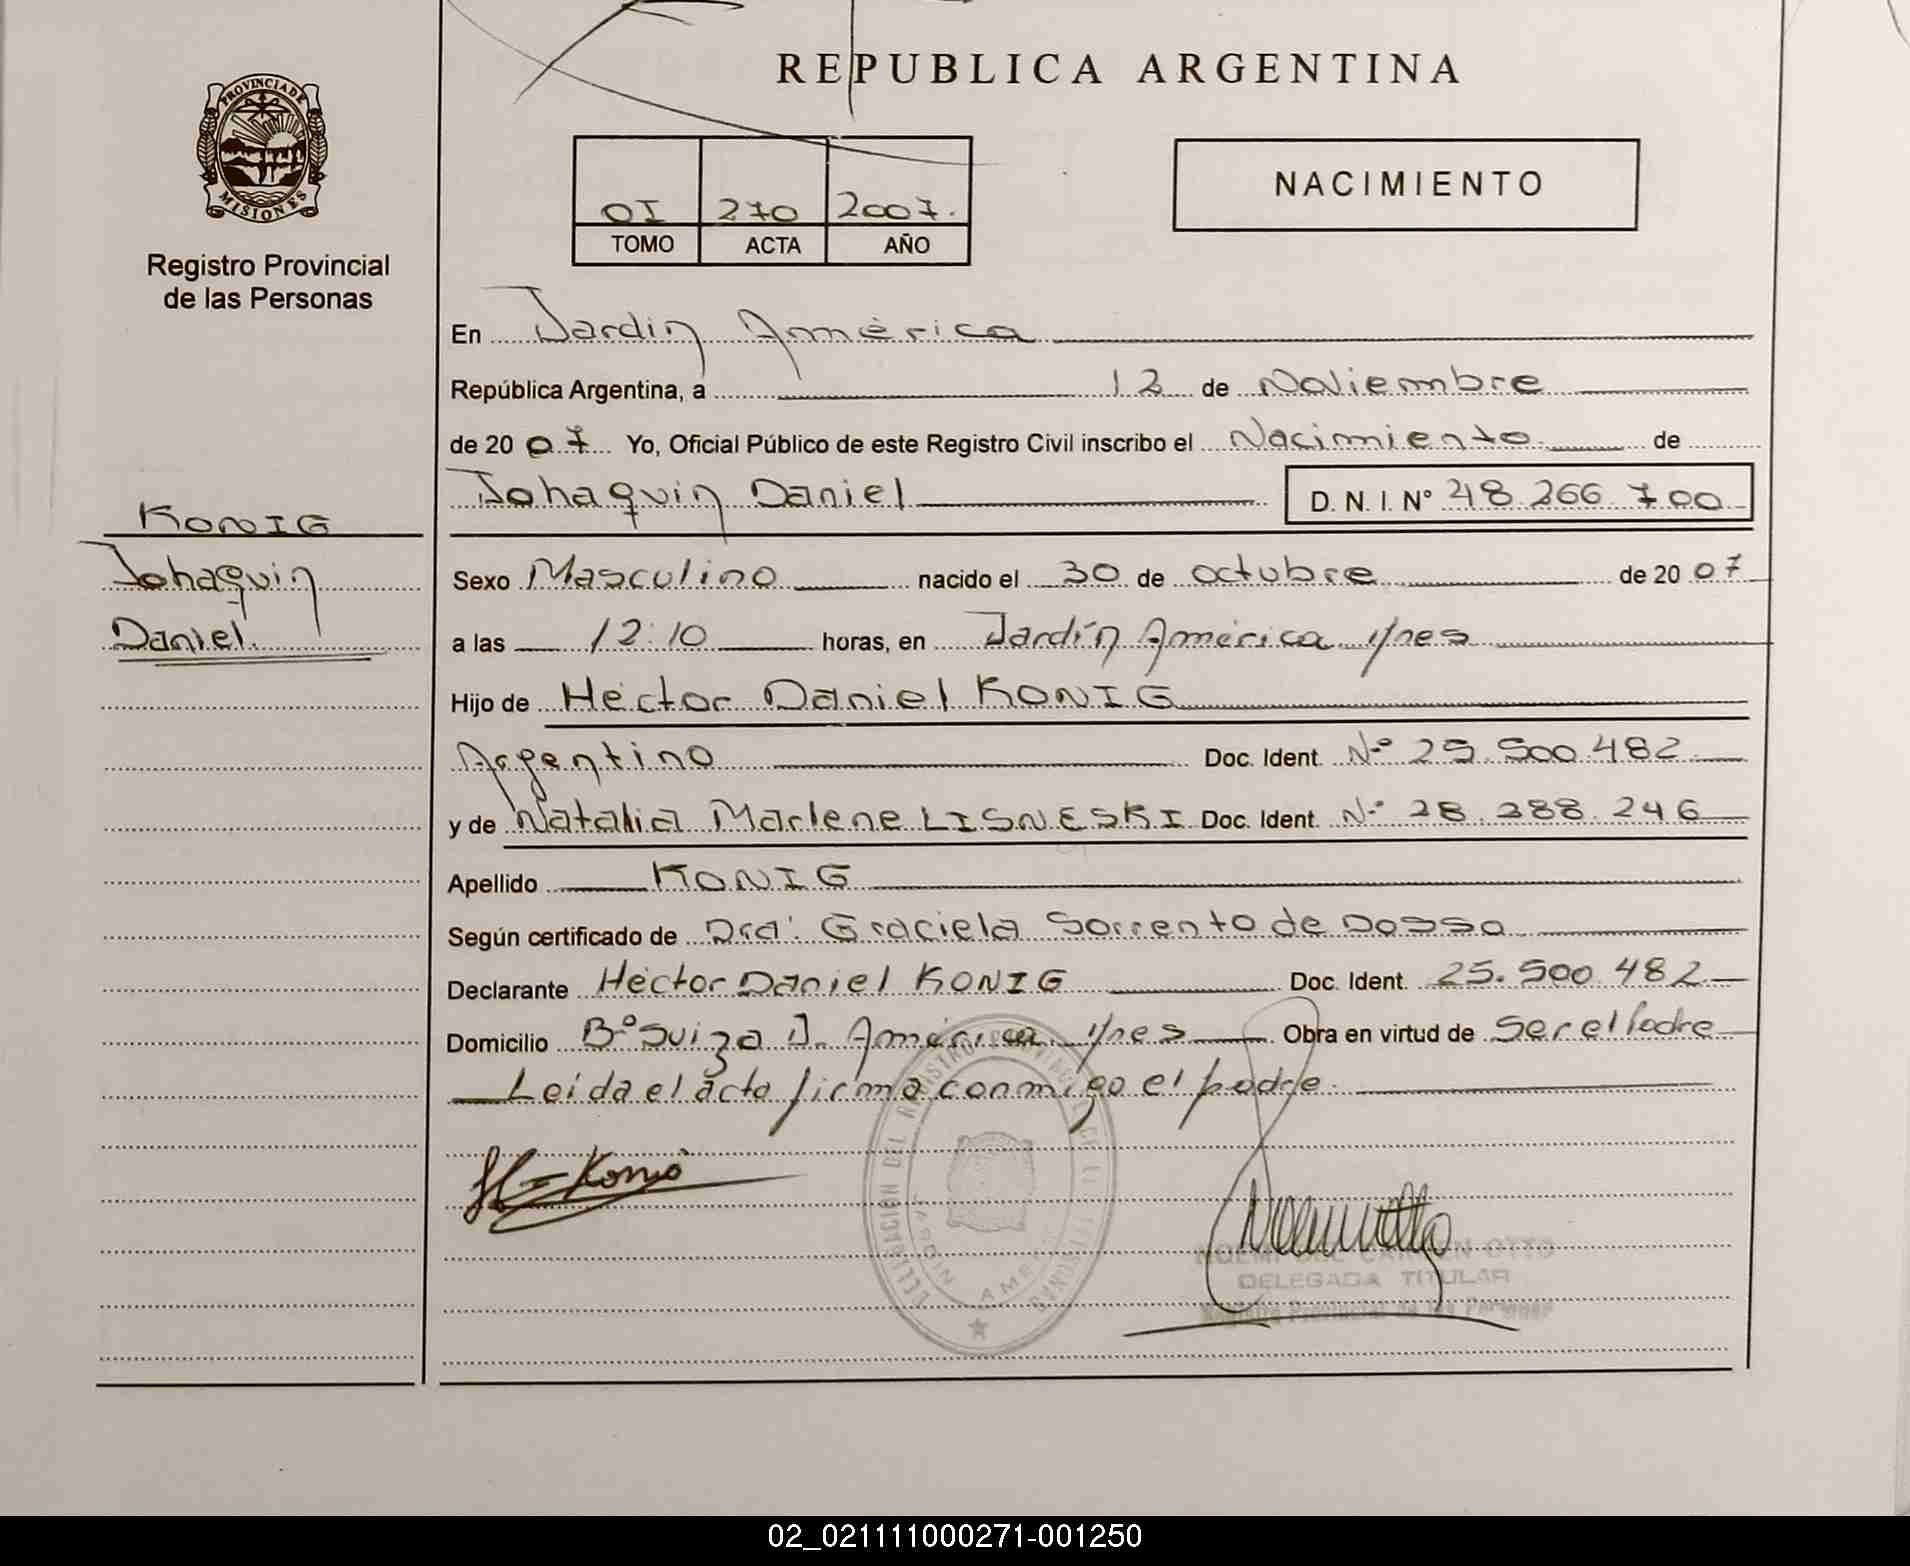 PROVINCIA DE
MISIONES
Registro Provincial
de las Personas
KONIG
Johaquin
Daniel.
REPUBLICA ARGENTINA
OI 270 2007.
TOMO ACTA AÑO
NACIMIENTO
En Jardin América
República Argentina, a 12 de Noviembre
de 2007 Yo, Oficial Público de este Registro Civil inscribo el Nacimiento de
Johaquin Daniel D. N. I. N° 48.266.700
Sexo Masculino nacido el 30 de octubre de 2007
a las 12:10 horas, en Jardín América
Hijo de Héctor Daniel KONIG
Argentino Doc. Ident. Nº 25.500.482
y de Natalia Marlene LISNESKI Doc. Ident. Nº 28.288.246
Apellido KONIG
Según certificado de Dra: Graciela Sorrento de Dosso
Declarante Héctor Daniel KONIG Doc. Ident. 25.500.482
Domicilio Bº Suiza J. América Obra en virtud de Ser el Padre
Leída el acta firma conmigo el padre.
NOEMI DEL CARMEN OTTO
DELEGADA TITULAR
Registro Provincial de las Personas
02_021111000271-001250